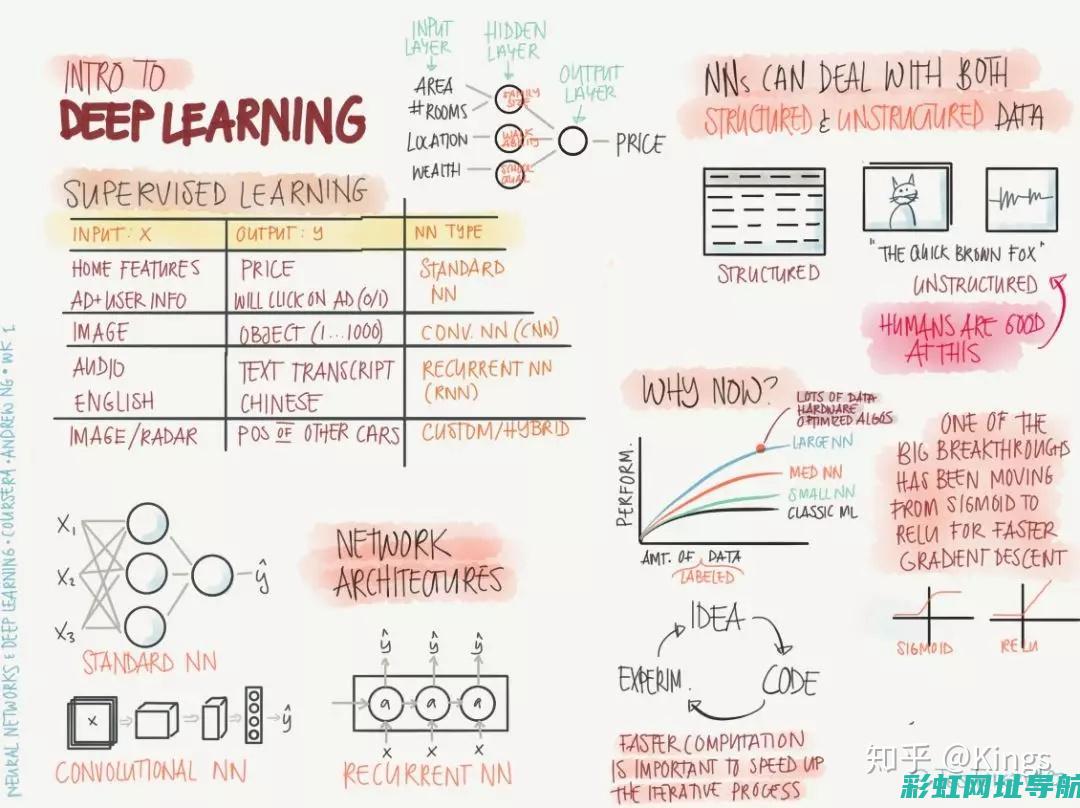 INTRO TO
DEEP LEARNING
INPUT
LAYER
HIDDEN
LAYER
OUTPUT
LAYER
AREA
#ROOMS
LOCATION
WEALTH
FAMILY
SIZE
WALK
ABILITY
SCHOOL
QUAL
PRICE
SUPERVISED LEARNING
INPUT: X OUTPUT: y NN TYPE
HOME FEATURES PRICE STANDARD
AD+USER INFO WILL CLICK ON AD (0/1) NN
IMAGE OBJECT (1...1000) CONV. NN (CNN)
AUDIO TEXT TRANSCRIPT RECURRENT NN
ENGLISH CHINESE (RNN)
IMAGE/RADAR POS OF OTHER CARS CUSTOM/HYBRID
NNs CAN DEAL WITH BOTH
STRUCTURED & UNSTRUCTURED DATA
STRUCTURED
"THE QUICK BROWN FOX"
UNSTRUCTURED
HUMANS ARE GOOD
AT THIS
WHY NOW?
LOTS OF DATA
HARDWARE
OPTIMIZED ALGOS
LARGE NN
MED NN
SMALL NN
CLASSIC ML
PERFORM.
AMT. OF DATA
LABELED
ONE OF THE
BIG BREAKTHROUGHS
HAS BEEN MOVING
FROM SIGMOID TO
RELU FOR FASTER
GRADIENT DESCENT
SIGMOID
RELU
X₁
X₂
X₃
ŷ
STANDARD NN
x
ŷ
CONVOLUTIONAL NN
NETWORK
ARCHITECTURES
ŷ ŷ ŷ
a a a
x x x
RECURRENT NN
IDEA
CODE
EXPERIM.
FASTER COMPUTATION
IS IMPORTANT TO SPEED UP
THE ITERATIVE PROCESS
NEURAL NETWORKS & DEEP LEARNING • COURSERA • ANDREW NG • WK 1
知乎 @Kings
彩虹网址导航